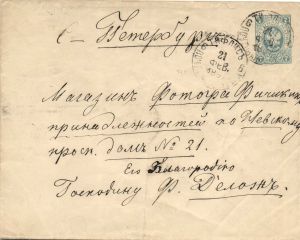 С-Петербургъ
21
ФЕВ.
Магазинъ Фотографическихъ
принадлежностей по Невскому
просп. домъ № 21.
Его Благородію
Господину Ф. Делонъ.